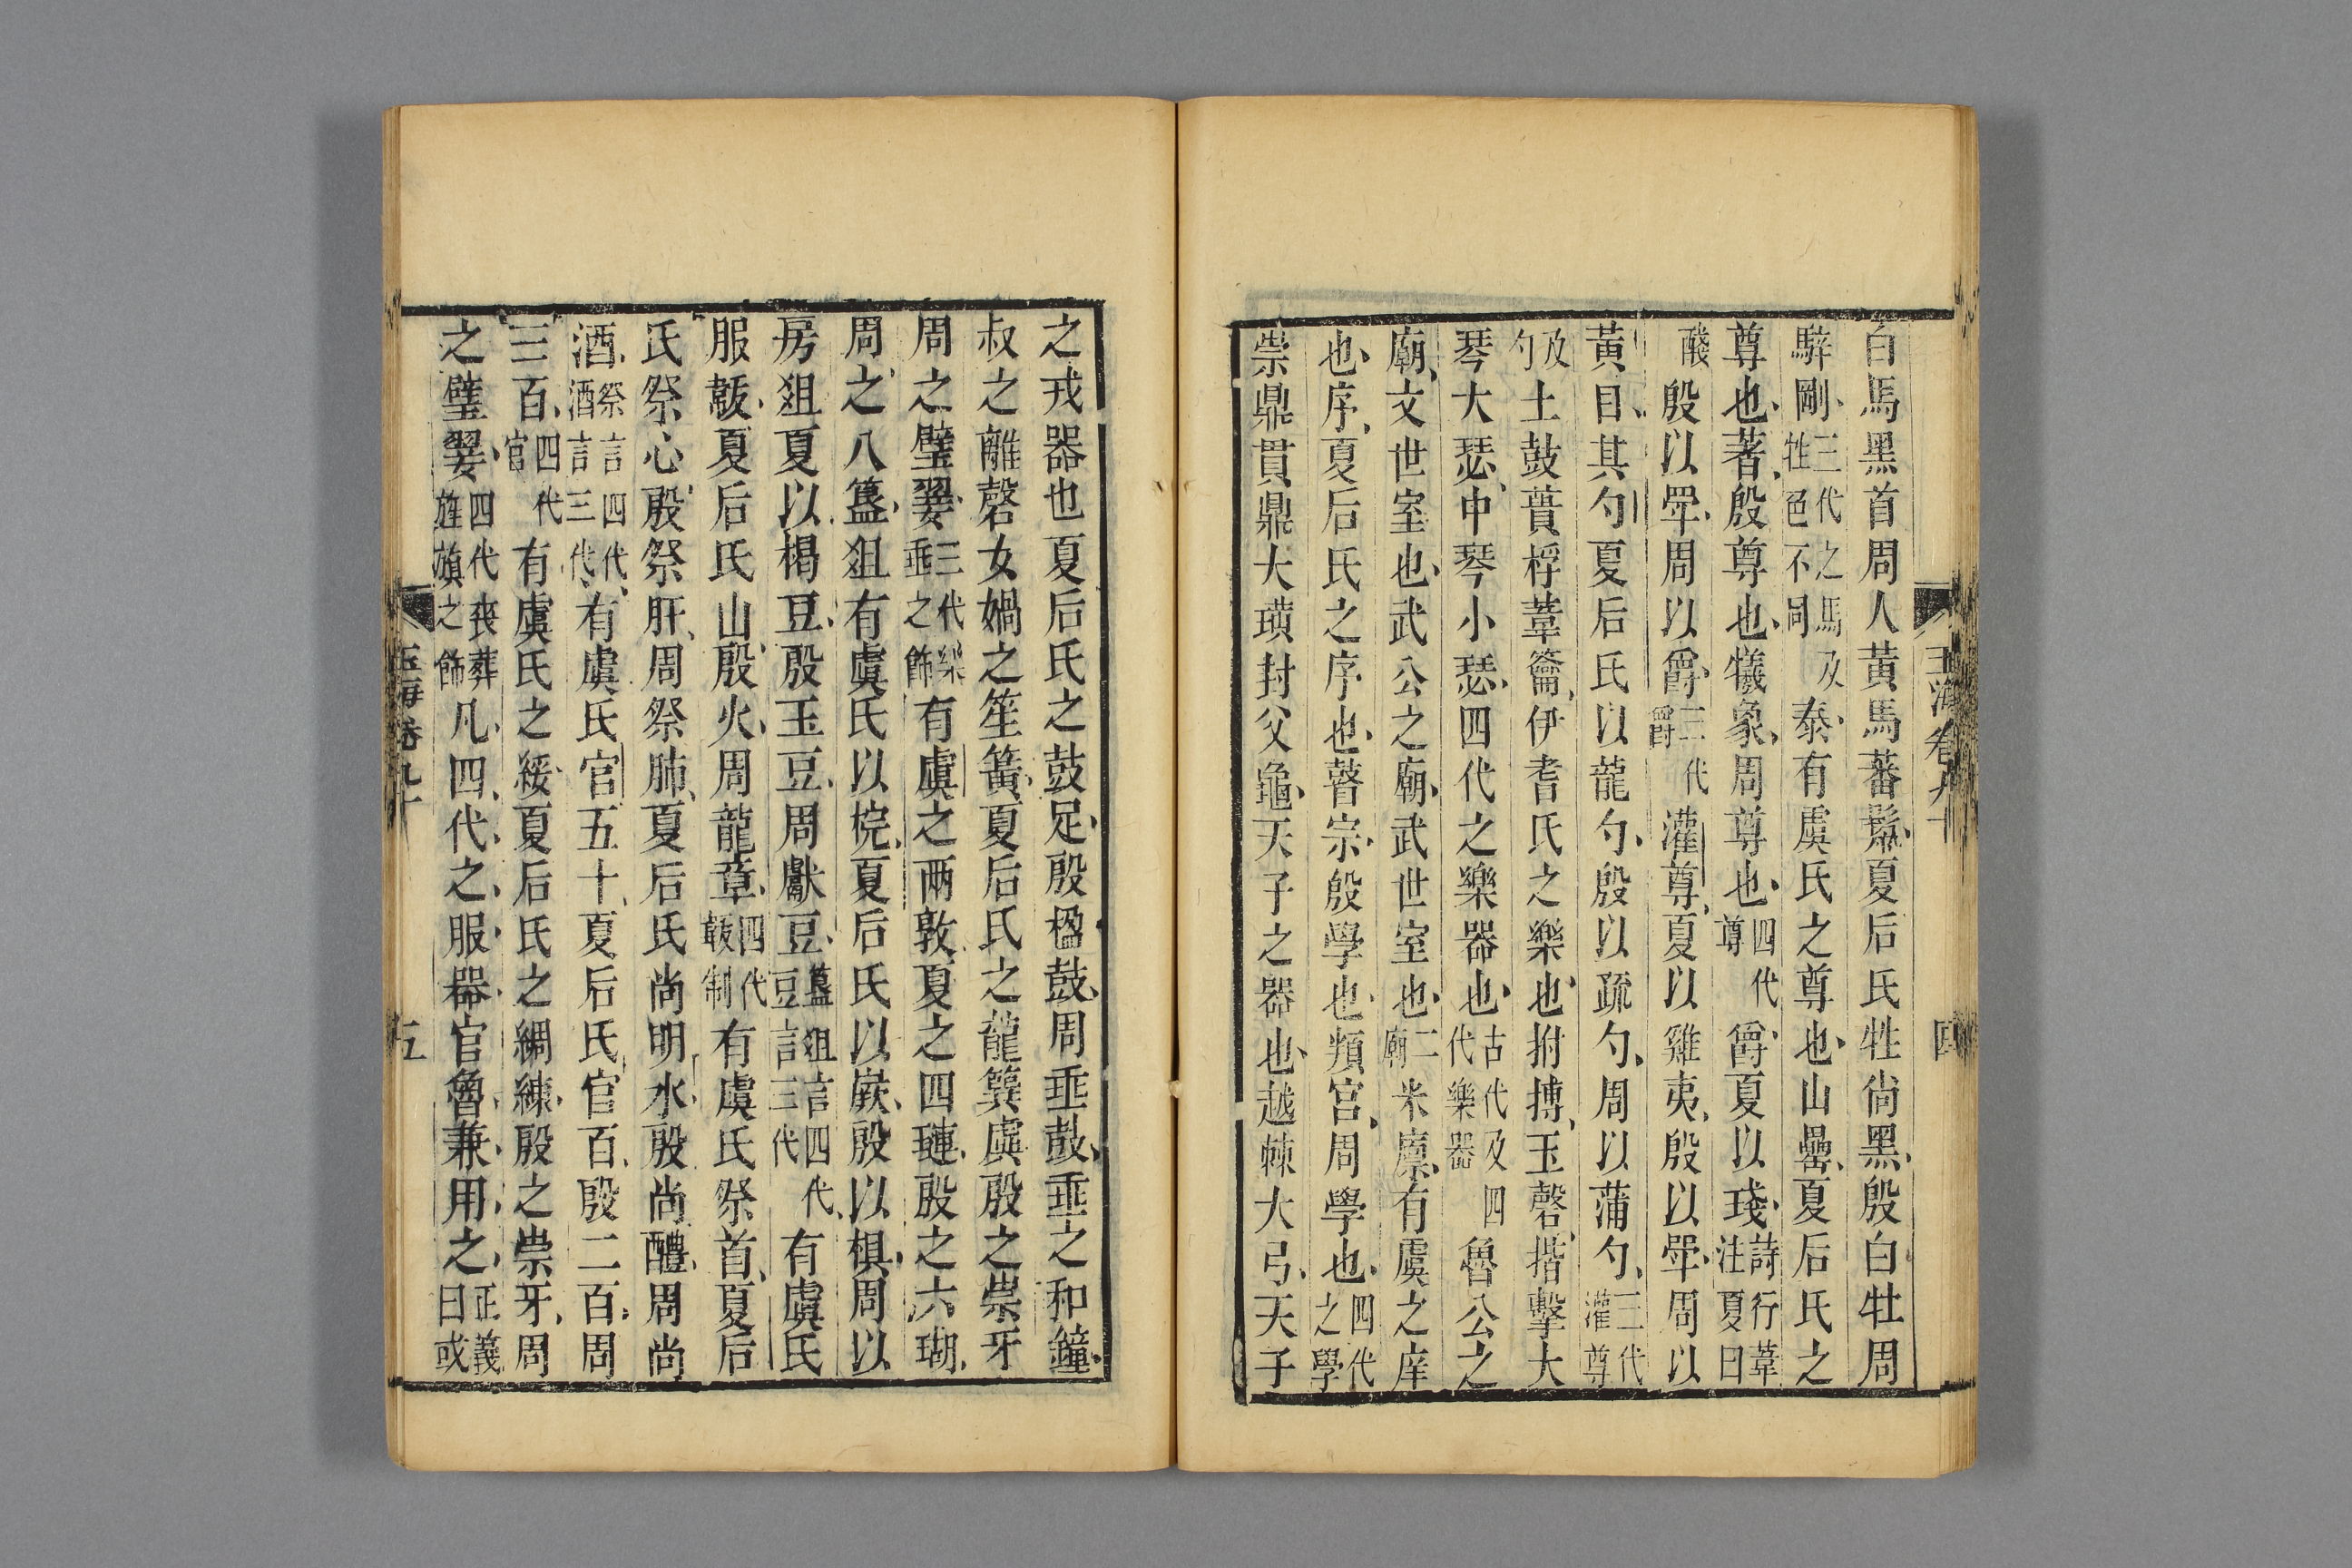 白馬黑首周人黃馬蕃鬛夏后氏牲尙黑殷白牡周
騂剛三代之馬及牲色不同泰有虞氏之尊也山罍夏后氏之
尊也著殷尊也犧象周尊也四代尊爵夏以琖詩行葦注夏曰
醆殷以斝周以爵三代爵灌尊夏以雞夷殷以斝周以
黃目其勺夏后氏以龍勺殷以疏勺周以蒲勺三代灌尊
及勺土鼓蕢桴葦籥伊耆氏之樂也拊搏玉磬揩擊大
琴大瑟中琴小瑟四代之樂器也古代及四代樂器魯公之
廟文世室也武公之廟武世室也二廟米廪有虞之庠
也序夏后氏之序也瞽宗殷學也頖宮周學也四代之學
崇鼎貫鼎大璜封父龜天子之器也越棘大弓天子
玉海卷九十
四
之戎器也夏后氏之鼓足殷楹鼓周垂鼓垂之和鐘
叔之離磬女媧之笙簧夏后氏之龍簨虡殷之崇牙
周之璧翣三代樂垂之飾有虞之兩敦夏之四璉殷之六瑚
周之八簋俎有虞氏以梡夏后氏以嶡殷以椇周以
房俎夏以楬豆殷玉豆周獻豆簋俎言四代豆言三代有虞氏
服韍夏后氏山殷火周龍章四代韍制有虞氏祭首夏后
氏祭心殷祭肝周祭肺夏后氏尚明水殷尚醴周尚
酒祭言四代酒言三代有虞氏官五十夏后氏官百殷二百周
三百四代官有虞氏之綏夏后氏之綢練殷之崇牙周
之璧翣四代喪葬旌旗之飾凡四代之服器官魯兼用之正義曰或
玉海卷九十
五